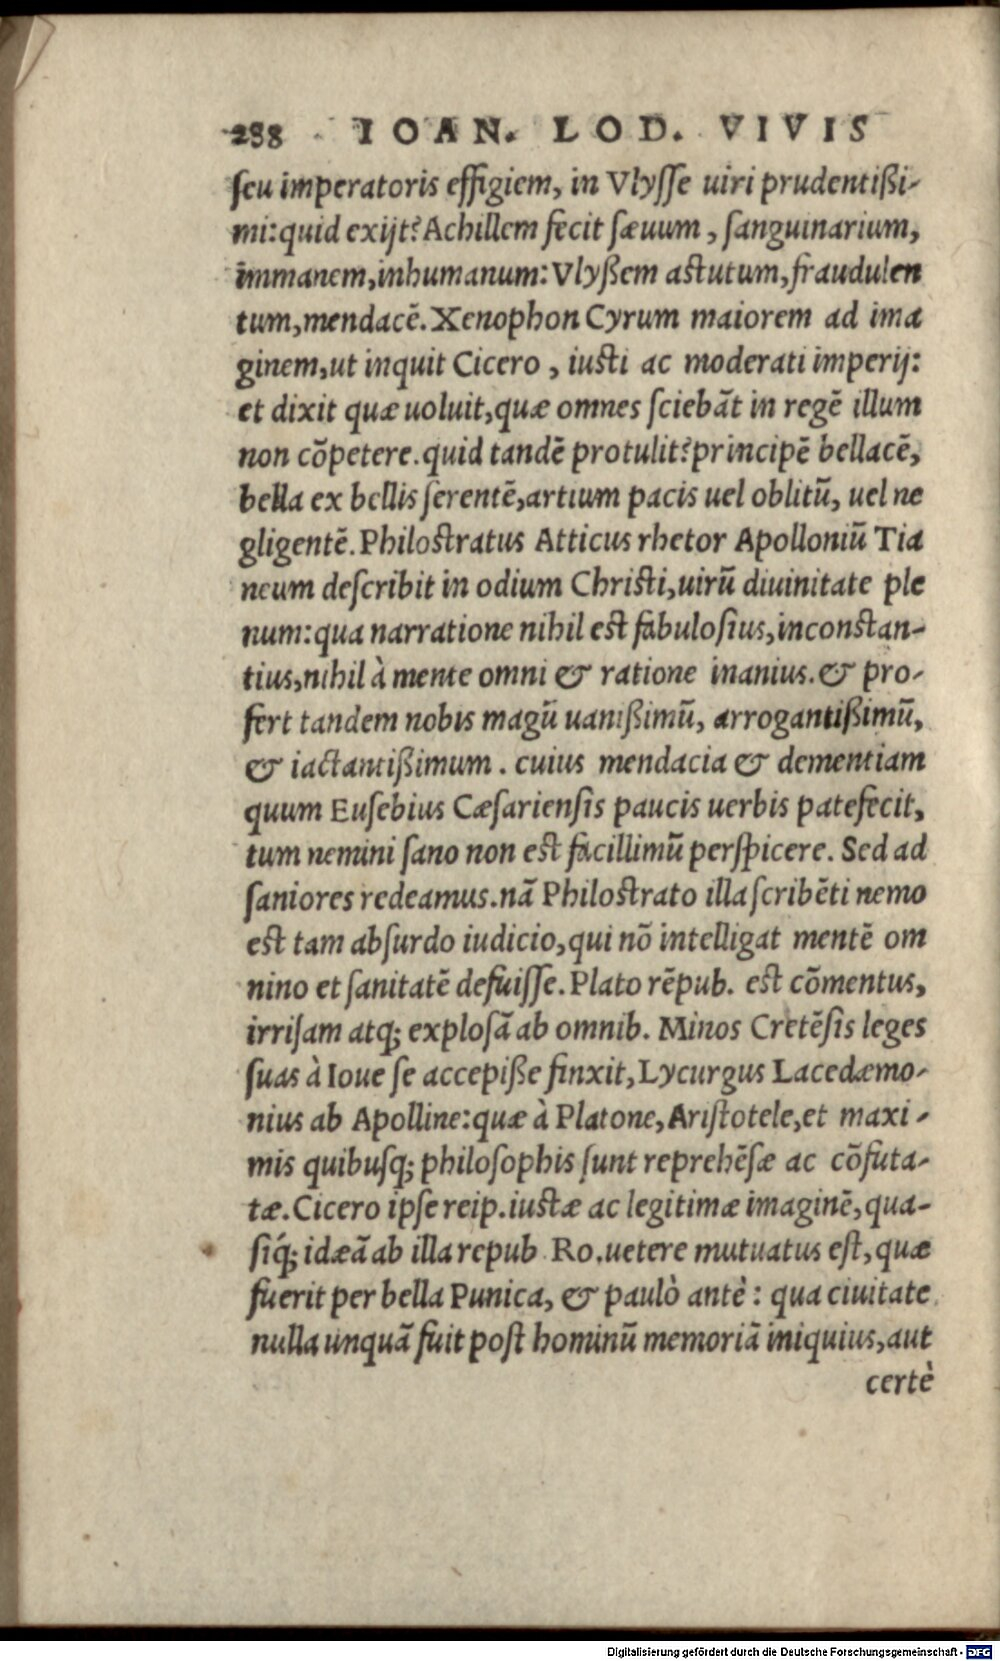 288 IOAN. LOD. VIVIS
ſeu imperatoris effigiem, in Vlyſſe uiri prudentißi-
mi: quid exijt? Achillem fecit ſæuum, ſanguinarium,
immanem, inhumanum: Vlyßem astutum, fraudulen
tum, mendacē. Xenophon Cyrum maiorem ad ima
ginem, ut inquit Cicero, iusti ac moderati imperij:
et dixit quæ uoluit, quæ omnes ſciebāt in regē illum
non cōpetere. quid tandē protulit? principē bellacē,
bella ex bellis ſerentē, artium pacis uel oblitū, uel ne
gligentē. Philostratus Atticus rhetor Apolloniū Tia
neum deſcribit in odium Christi, uirū diuinitate ple
num: qua narratione nihil est fabuloſius, inconstan-
tius, nihil à mente omni & ratione inanius. & pro-
fert tandem nobis magū uanißimū, arrogantißimū,
& iactantißimum. cuius mendacia & dementiam
quum Euſebius Cæſarienſis paucis uerbis patefecit,
tum nemini ſano non est facillimū perſpicere. Sed ad
ſaniores redeamus. nā Philostrato illa ſcribēti nemo
est tam abſurdo iudicio, qui nō intelligat mentē om
nino et ſanitatē defuiſſe. Plato rēpub. est cōmentus,
irriſam atq; exploſā ab omnib. Minos Cretēſis leges
ſuas à Ioue ſe accepiße finxit, Lycurgus Lacedæmo-
nius ab Apolline: quæ à Platone, Ariſtotele, et maxi-
mis quibuſq; philoſophis ſunt reprehēſæ ac cōfuta-
tæ. Cicero ipſe reip. iustæ ac legitimæ imaginē, qua-
ſiq́; idæā ab illa repub. Ro. uetere mutuatus eſt, quæ
fuerit per bella Punica, & paulò antè: qua ciuitate
nulla unquā fuit poſt hominū memoriā iniquius, aut
certè
Digitalisierung gefördert durch die Deutsche Forschungsgemeinschaft - DFG